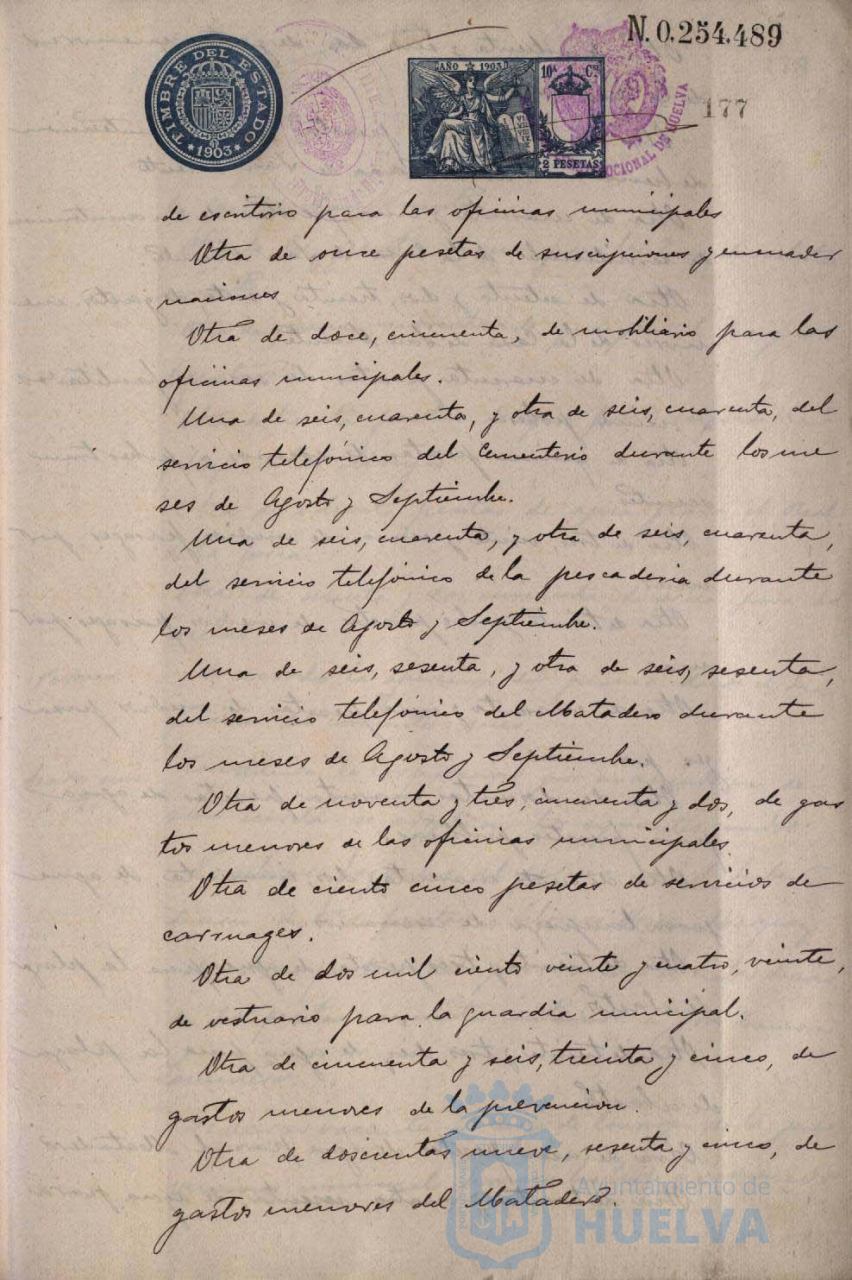 N.0.254.489
TIMBRE DEL ESTADO
1903
AÑO 1903
10ª C.
2 PESETAS
177
de escritorio para las oficinas municipales
Otra de once pesetas de suscripciones y encuader
naciones
Otra de doce, cincuenta, de mobiliario para las
oficinas municipales.
Una de seis, cuarenta, y otra de seis, cuarenta, del
servicio telefónico del Cementerio durante los me
ses de Agosto y Septiembre.
Una de seis, cuarenta, y otra de seis, cuarenta,
del servicio telefónico de la pescaderia durante
los meses de Agosto y Septiembre.
Una de seis, sesenta, y otra de seis, sesenta,
del servicio telefónico del Matadero durante
los meses de Agosto y Septiembre.
Otra de noventa y tres, cincuenta y dos, de gas
tos menores de las oficinas municipales
Otra de ciento cinco pesetas de servicios de
carruages.
Otra de dos mil ciento veinte y cuatro, veinte,
de vestuario para la guardia municipal.
Otra de cincuenta y seis, treinta y cinco, de
gastos menores de la prevencion.
Otra de doscientas nueve, sesenta y cinco, de
gastos menores del Matadero.
Ayuntamiento de
HUELVA